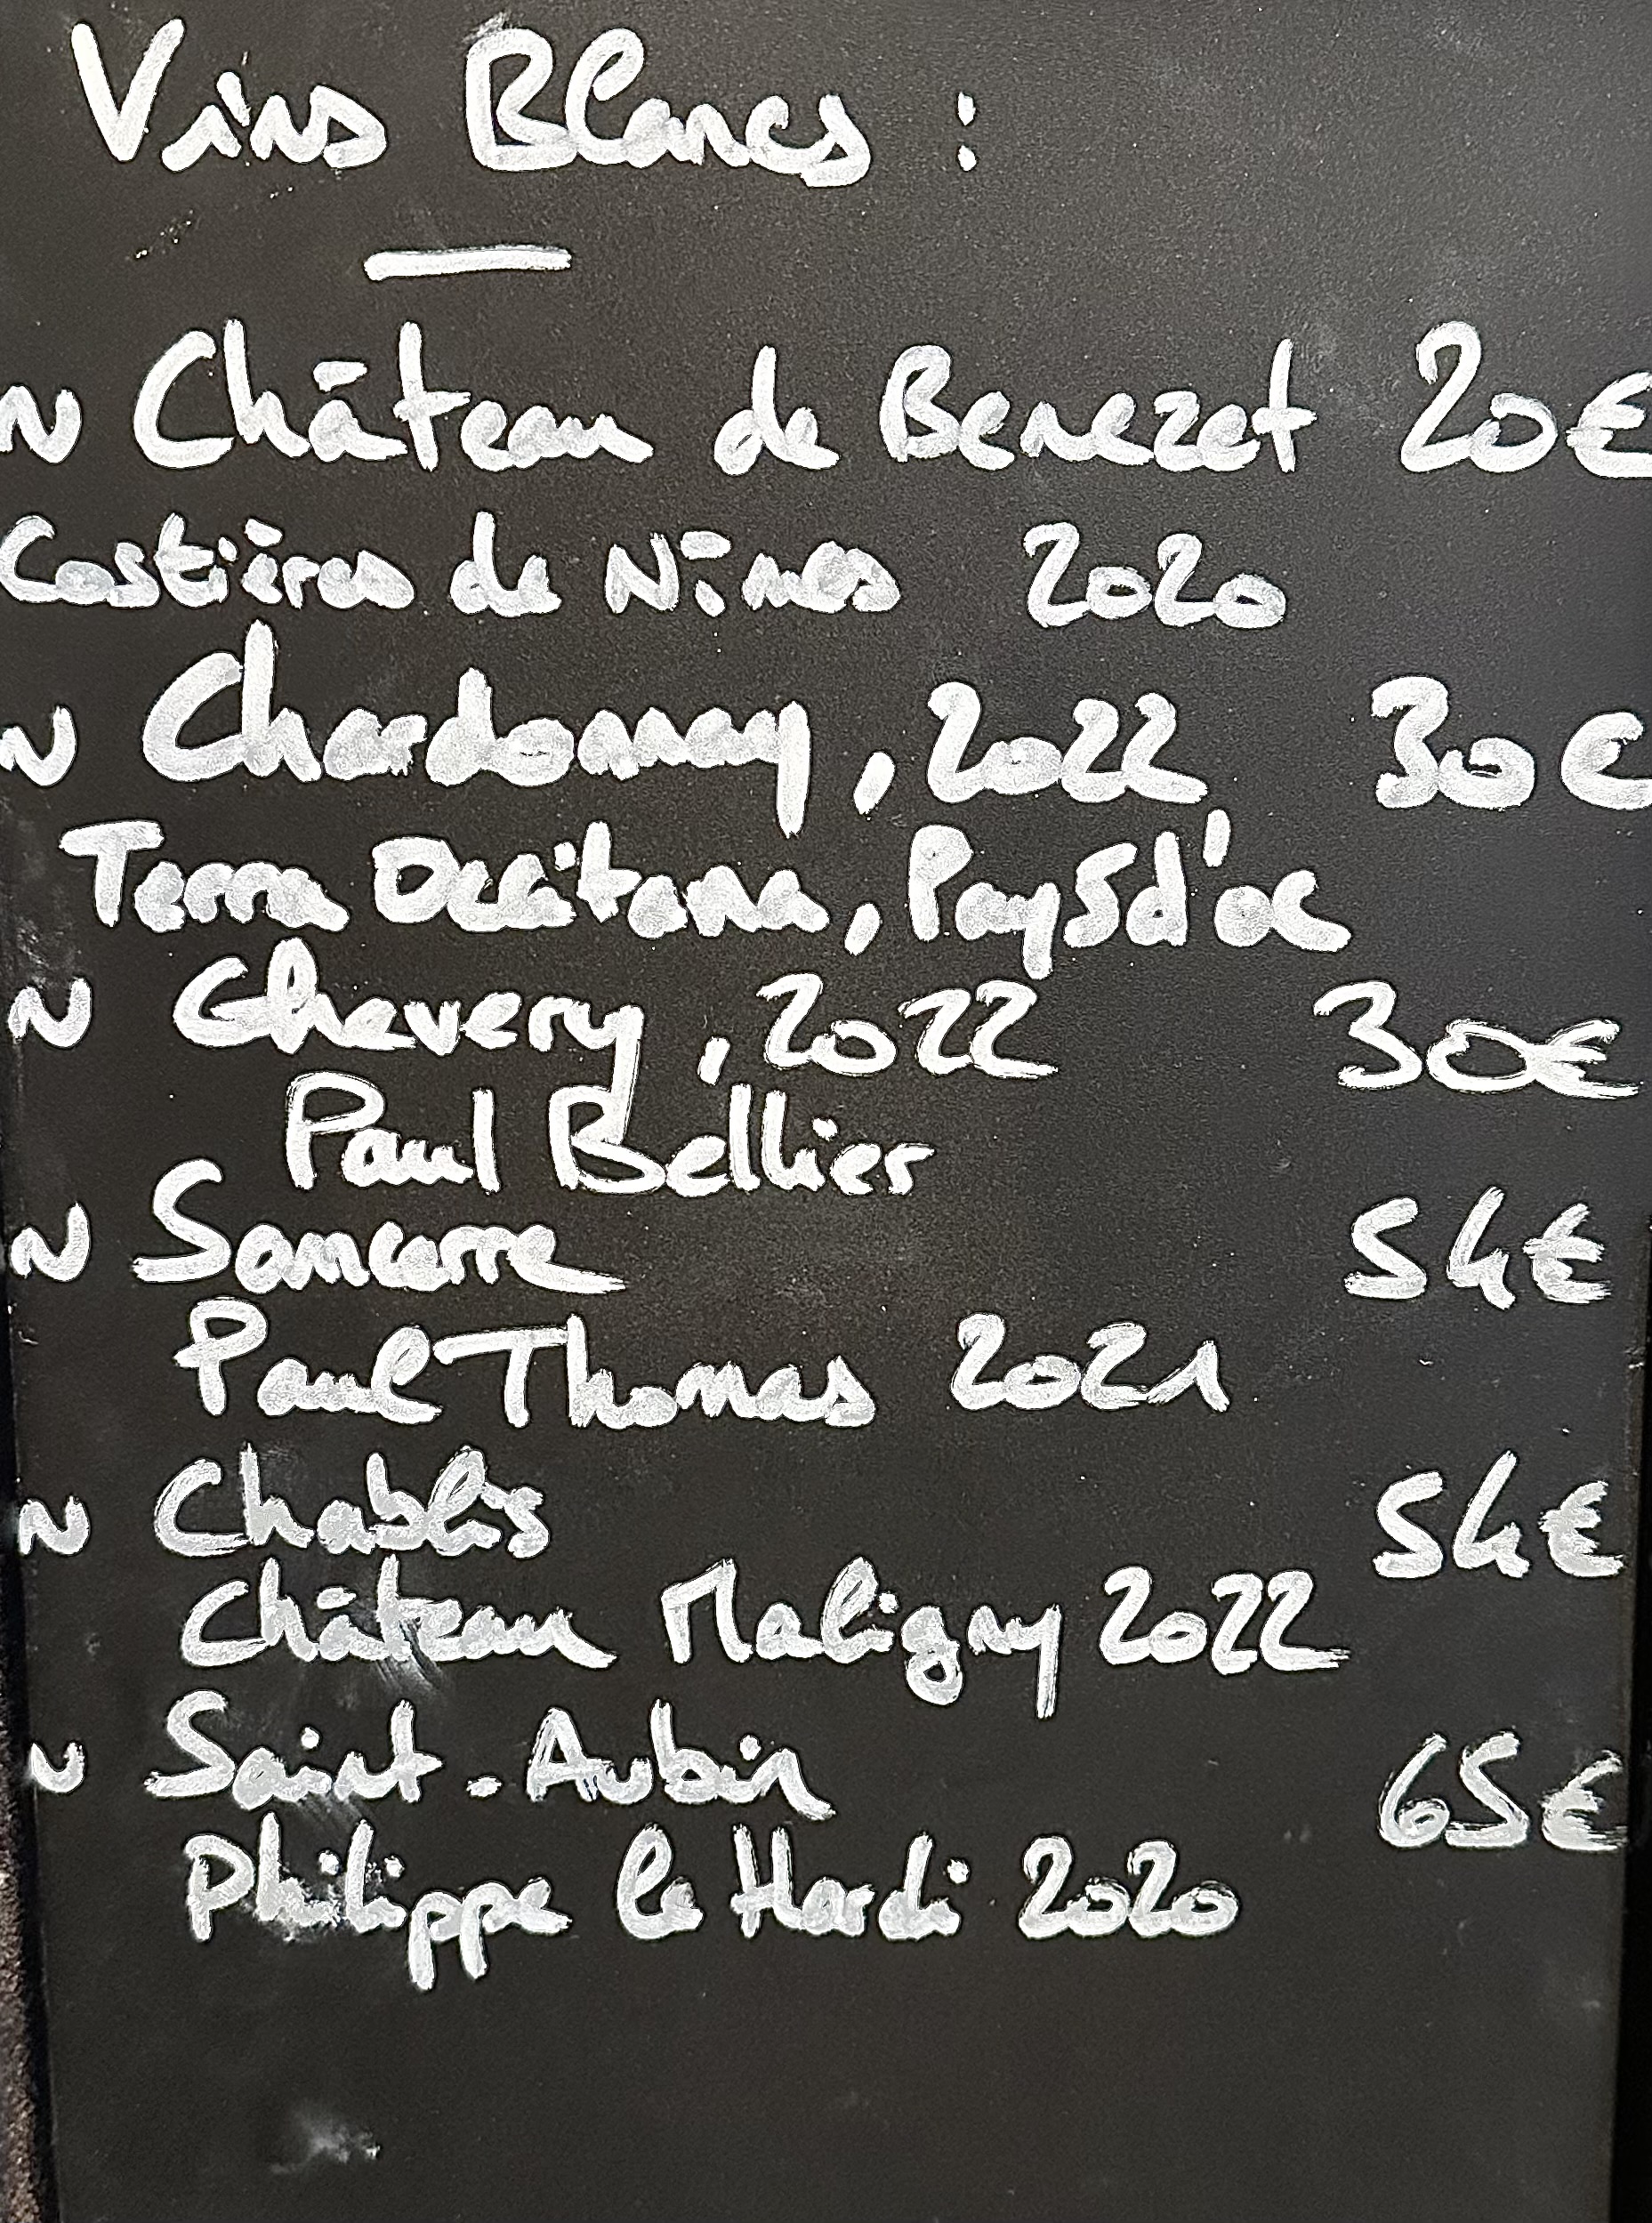 Vins Blancs :
~ Château de Benezet 20€
Costières de Nîmes 2020
~ Chardonnay, 2022 30€
Terra Occitana, Pays d'oc
~ Chevery, 2022 30€
Paul Bellier
~ Sancerre 54€
Paul Thomas 2021
~ Chablis 54€
Château Maligny 2022
~ Saint-Aubin 65€
Philippe le Hardi 2020